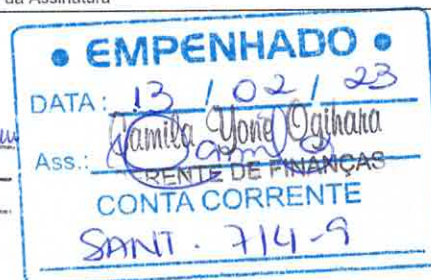 da Assinatura
• EMPENHADO •
DATA: 13 / 02 / 23
Camila Yone Ogihara
Ass.:
RENTE DE FINANÇAS
CONTA CORRENTE
SANT. 714-9